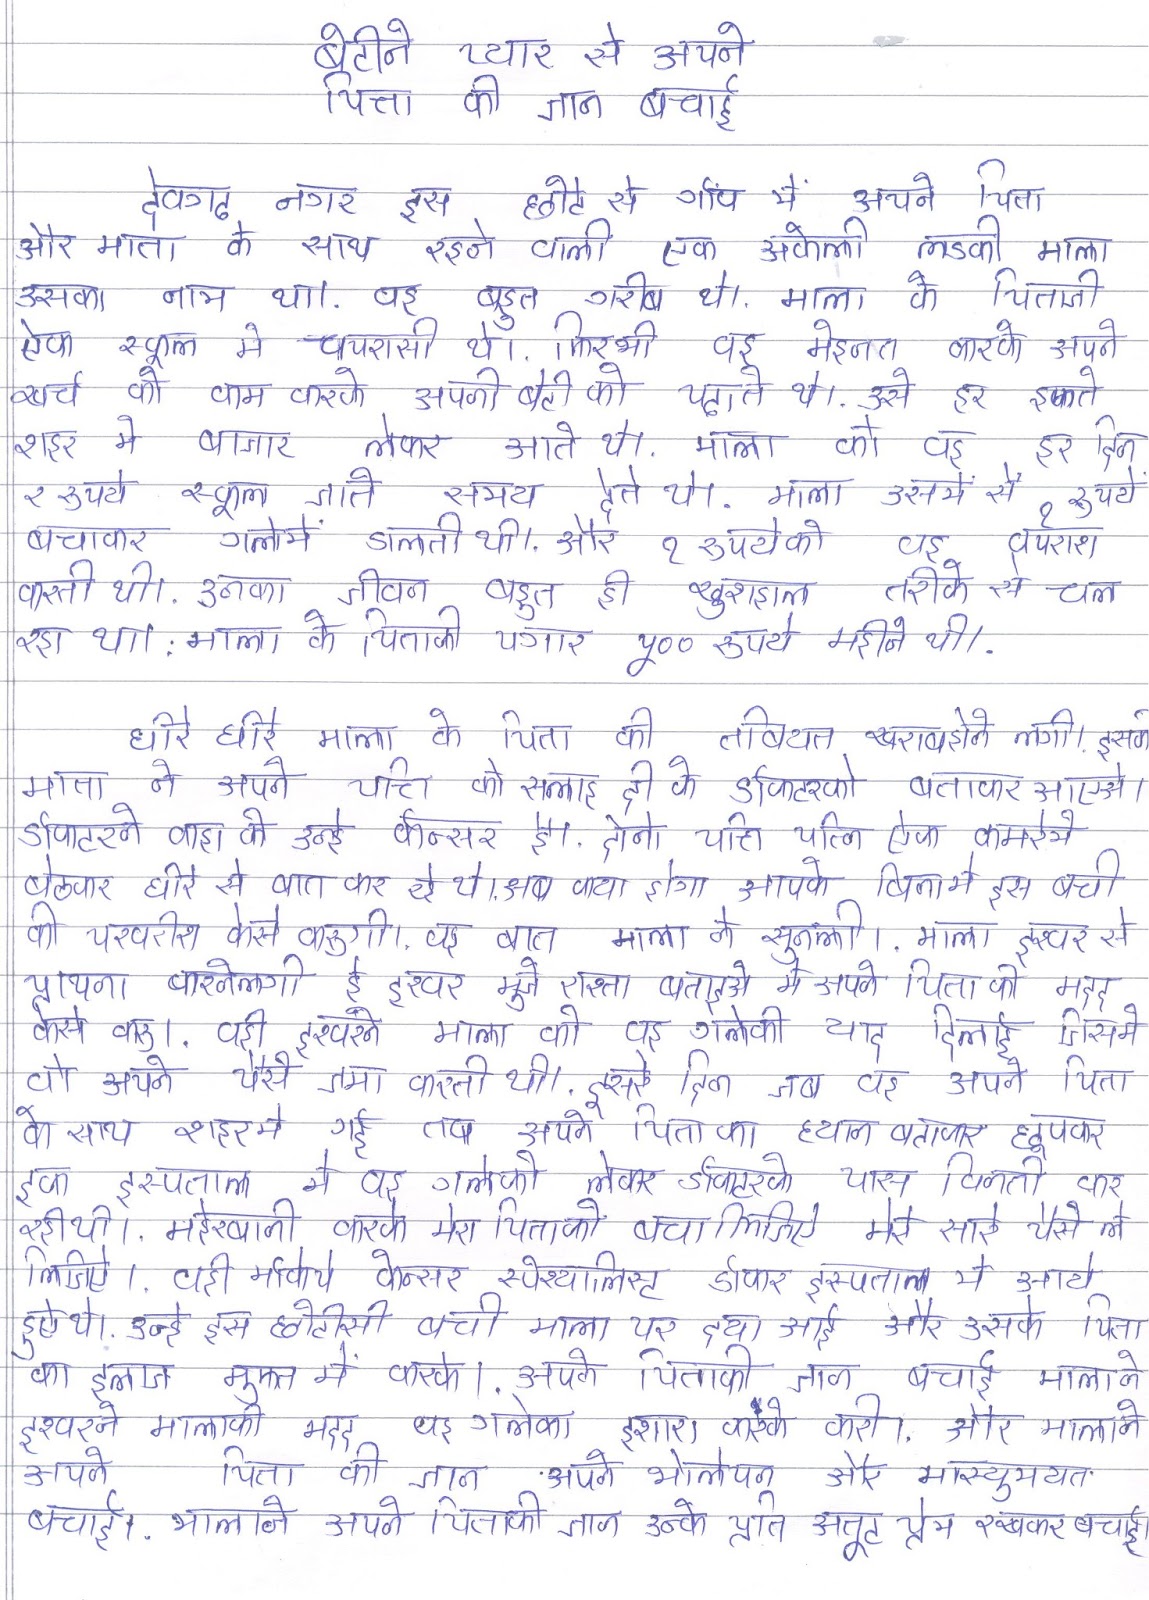 बेटीने प्यार से अपने
पिता की जान बचाई
देवगढ नगर इस छोटे से गाँव में अपने पिता
और माता के साथ रहने वाली एक अकेली लडकी माला
उसका नाम था।. वह बहुत गरीब थे।. माला के पिताजी
ऐक स्कूल मे चपरासी थे।. फिरभी वह मेहनत करके अपने
खर्च को काम करके अपनी बेटी को पढाते थे।. उसे हर हफ्ते
शहर मे बाजार लेकर आते थे।. माला को वह हर दिन
२ रुपये स्कूल जाते समय देते थे।. माला उसमें से १ रुपये
बचाकर गलेमें डालती थी।. और १ रुपयेको वह वपराश
करती थी।. उनका जीवन बहुत ही खुशहाल तरीके से चल
रहा था।. माला के पिताकी पगार ५०० रुपये महीने थी।.
धीरे धीरे माला के पिता की तबियत खराबहोने लगी। इसके
माता ने अपने पति को सलाह दी के डॉक्टरको बताकर आएओ।
डॉक्टरने कहा के उन्हे केन्सर है।. दोनो पति पत्नि ऐक कमरेमे
बेठकर धीरे से बात कर रहे थे।.अब क्या होगा आपके बिना मे इस बची
की परवरीश केसे करुगी।. यह बात माला ने सुनली।. माला इश्वर से
प्राथना करनेलगी हे इश्वर मुजे रास्ता बताइओ मे अपने पिता की मदद
केसे करु।. वही इश्वरने माला को वह गलेकी याद दिलाई जिसमे
वो अपने पैसे जमा करती थी।. दूसरे दिन जब वह अपने पिता
के साथ शहरमे गई तब अपने पिता का ध्यान बताकर छूपकर
इक इस्पताल मे वह गलेको लेकर डॉक्टरके पास विनती कर
रहीथी।. महेरबानी करके मेरा पिताको बचा लिजिऐ मेरे सारे पैसे ले
लिजिऐ।. वही मौकोपे केन्सर स्पेश्यालिस्ट डॉक्टर इस्पताल मे आये
हुऐ थे।. उन्हे इस छोटीसी बची माला पर दया आई और उसके पिता
का इलाज मुफ्त में करके।. अपके पिताकी जान बचाई मालाने
इश्वरने मालाकी मदद वह गलेका इशारा करके करी।. और मालाने
अपने पिता की जान अपने भोलेपन और मास्युमयत
बचाई।. मालाने अपने पिताकी जान उनके प्रति अतूट प्रेम रखकर बचाई।